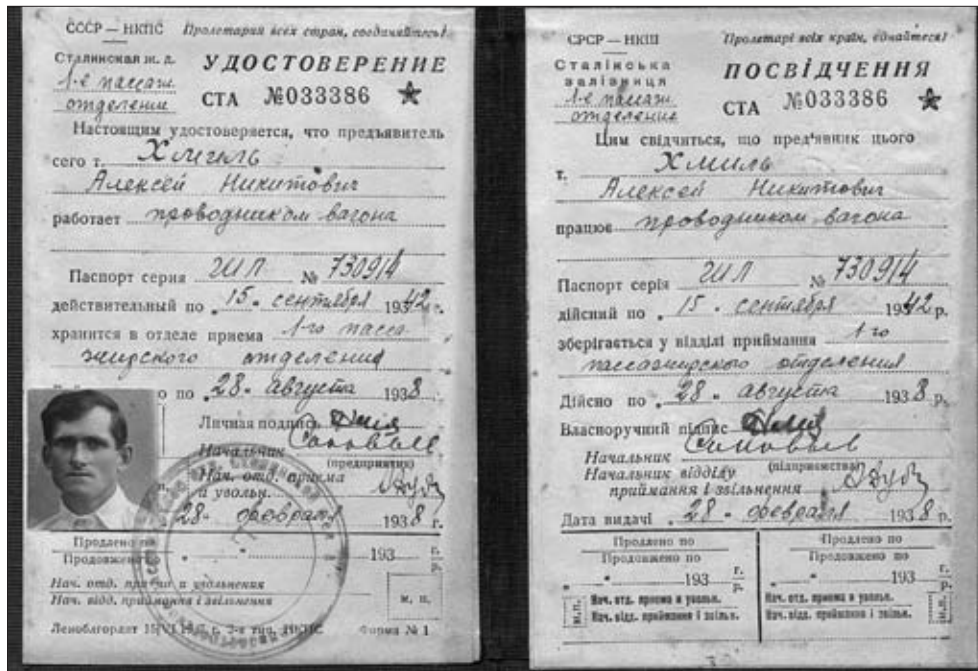 СССР — НКПС Пролетарии всех стран, соединяйтесь!
Сталинская ж. д.
1-е пассаж.
отделение
УДОСТОВЕРЕНИЕ
СТА №033386
Настоящим удостоверяется, что предъявитель
сего т. Хмель
Алексей Никитович
работает проводником вагона
Паспорт серия ШЛ № 730914
действительный по 15 " сентября 1942 г.
хранится в отделе приема 1-го пасса
жирского отделения
о по " 28 " августа 1938
Личная подпись
Соловьев
Начальник
(предприятия)
Нач. отд. приема
и увольн.
28 " февраля 1938 г.
Продлено по
Продовжено по " " 193 г. р.
Нач. отд. приема и увольнения
Нач. відд. приймання і звільнення
м. п.
Леноблгорлит НКПС Форма № 1
СРСР — НКШ Пролетарі всіх країн, єднайтеся!
Сталінська
залізниця
1-е пассаж.
отделение
ПОСВІДЧЕННЯ
СТА №033386
Цим свідчиться, що пред'явник цього
т. Хмиль
Алексей Никитович
працює проводником вагона
Паспорт серія ШЛ № 730914
дійсний по " 15 " сентября 1942 р.
зберігається у відділі приймання 1 го
пассажирского отделения
Дійсно по " 28 " августа 1938 р.
Власноручний підпис
Соловьев
Начальник
(підприємства)
Начальник відділу
приймання і звільнення
Дата видачі " 28 " февраля 1938 р.
Продлено по
Продовжено по
" " 193 г. р.
м.п.
Нач. отд. приема и увольн.
Нач. відд. приймання і звільн.
Продлено по
Продовжено по
" " 193 г. р.
м.п.
Нач. отд. приема и увольн.
Нач. відд. приймання і звільн.